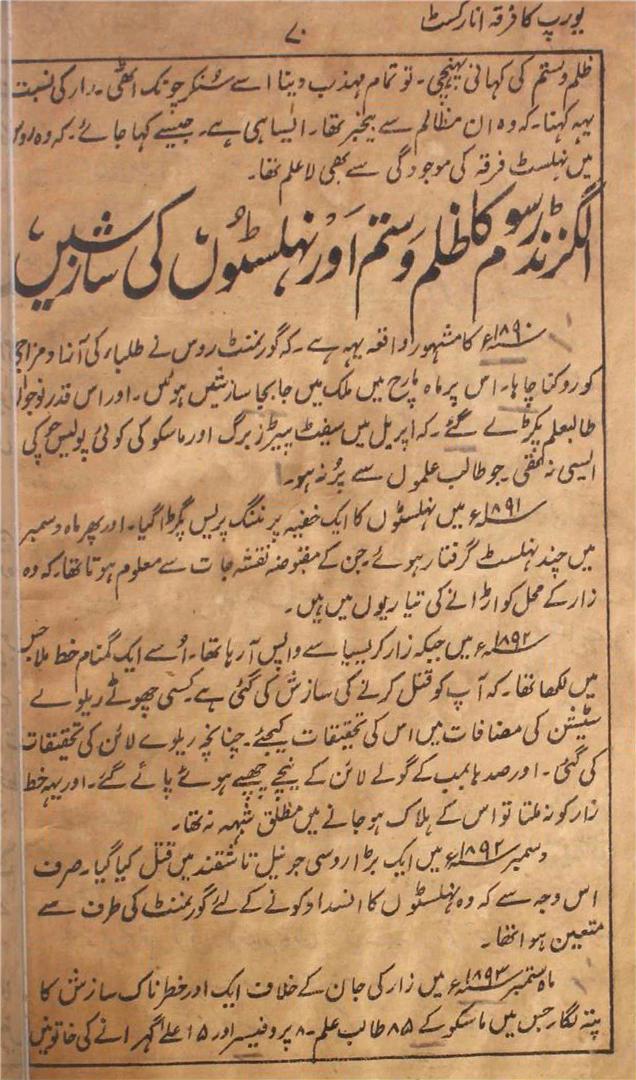 یورپ کا فرقہ انارکسٹ
۷۰
ظلم و ستم کی کہانی پہنچی۔ تو تمام مہذب دینا اسے سُنکر چونک اٹھی۔ زار کی نسبت
یہہ کہنا۔ کہ وہ ان مظالم سے بیخبر تھا۔ ایسا ہی ہے۔ جیسے کہا جائے۔ کہ وہ روس
میں نہلسٹ فرقہ کی موجودگی سے بھی لا علم تھا۔
الگزنڈر سوم کا ظلم و ستم اور نہلسٹوں کی سازشیں
۱۸۹۰ء کا مشہور واقعہ یہہ ہے۔ کہ گورنمنٹ روس نے طلباء کی آزاد مزاجی
کو روکنا چاہا۔ اس پر ماہ مارچ میں ملک میں جا بجا سازشیں ہوئیں۔ اور اس قدر نوجوان
طالبعلم پکڑے گئے۔ کہ اپریل میں سینٹ پیٹرز برگ اور ماسکو کی کوئی پولیس چوکی
ایسی نہ تھی۔ جو طالب علموں سے پُر نہ ہو۔
۱۸۹۱ء میں نہلسٹوں کا ایک خفیہ پرنٹنگ پریس پکڑا گیا۔ اور پھر ماہ دسمبر
میں چند نہلسٹ گرفتار ہوئے جن کے مقبوضہ نقشہ جات سے معلوم ہوتا تھا۔ کہ وہ
زار کے محل کو اڑانے کی تیاریوں میں ہیں۔
۱۸۹۲ء میں جبکہ زار کریمیا سے واپس آرہا تھا۔ اُسے ایک گمنام خط ملا جس
میں لکھا تھا۔ کہ آپ کو قتل کرنے کی سازش کی گئی ہے۔ کسی چھوٹے ریلوے
سٹیشن کی مضافات میں اس کی تحقیقات کیجئے۔ چنانچہ ریلوے لائن کی تحقیقات
کی گئی۔ اور صدہا بمب کے گولے لائن کے نیچے چھپے ہوئے پائے گئے۔ اور یہہ خط
زار کو نہ ملتا تو اس کے ہلاک ہو جانے میں مطلق شبہہ نہ تھا۔
دسمبر ۱۸۹۲ء میں ایک بڑا روسی جرنیل تاشقند میں قتل کیا گیا۔ صرف
اس وجہ سے کہ وہ نہلسٹوں کا انسداد کونے کے لئے گورنمنٹ کی طرف سے
متعین ہوا تھا۔
ماہ ستمبر ۱۸۹۳ء میں زار کی جان کے خلاف ایک اور خطرناک سازش کا
پتہ لگا۔ جس میں ماسکو کے ۸۵ طالب علم۔ ۸ پروفیسر اور ۱۵ اعلےٰ گہرانے کی خاتونیں